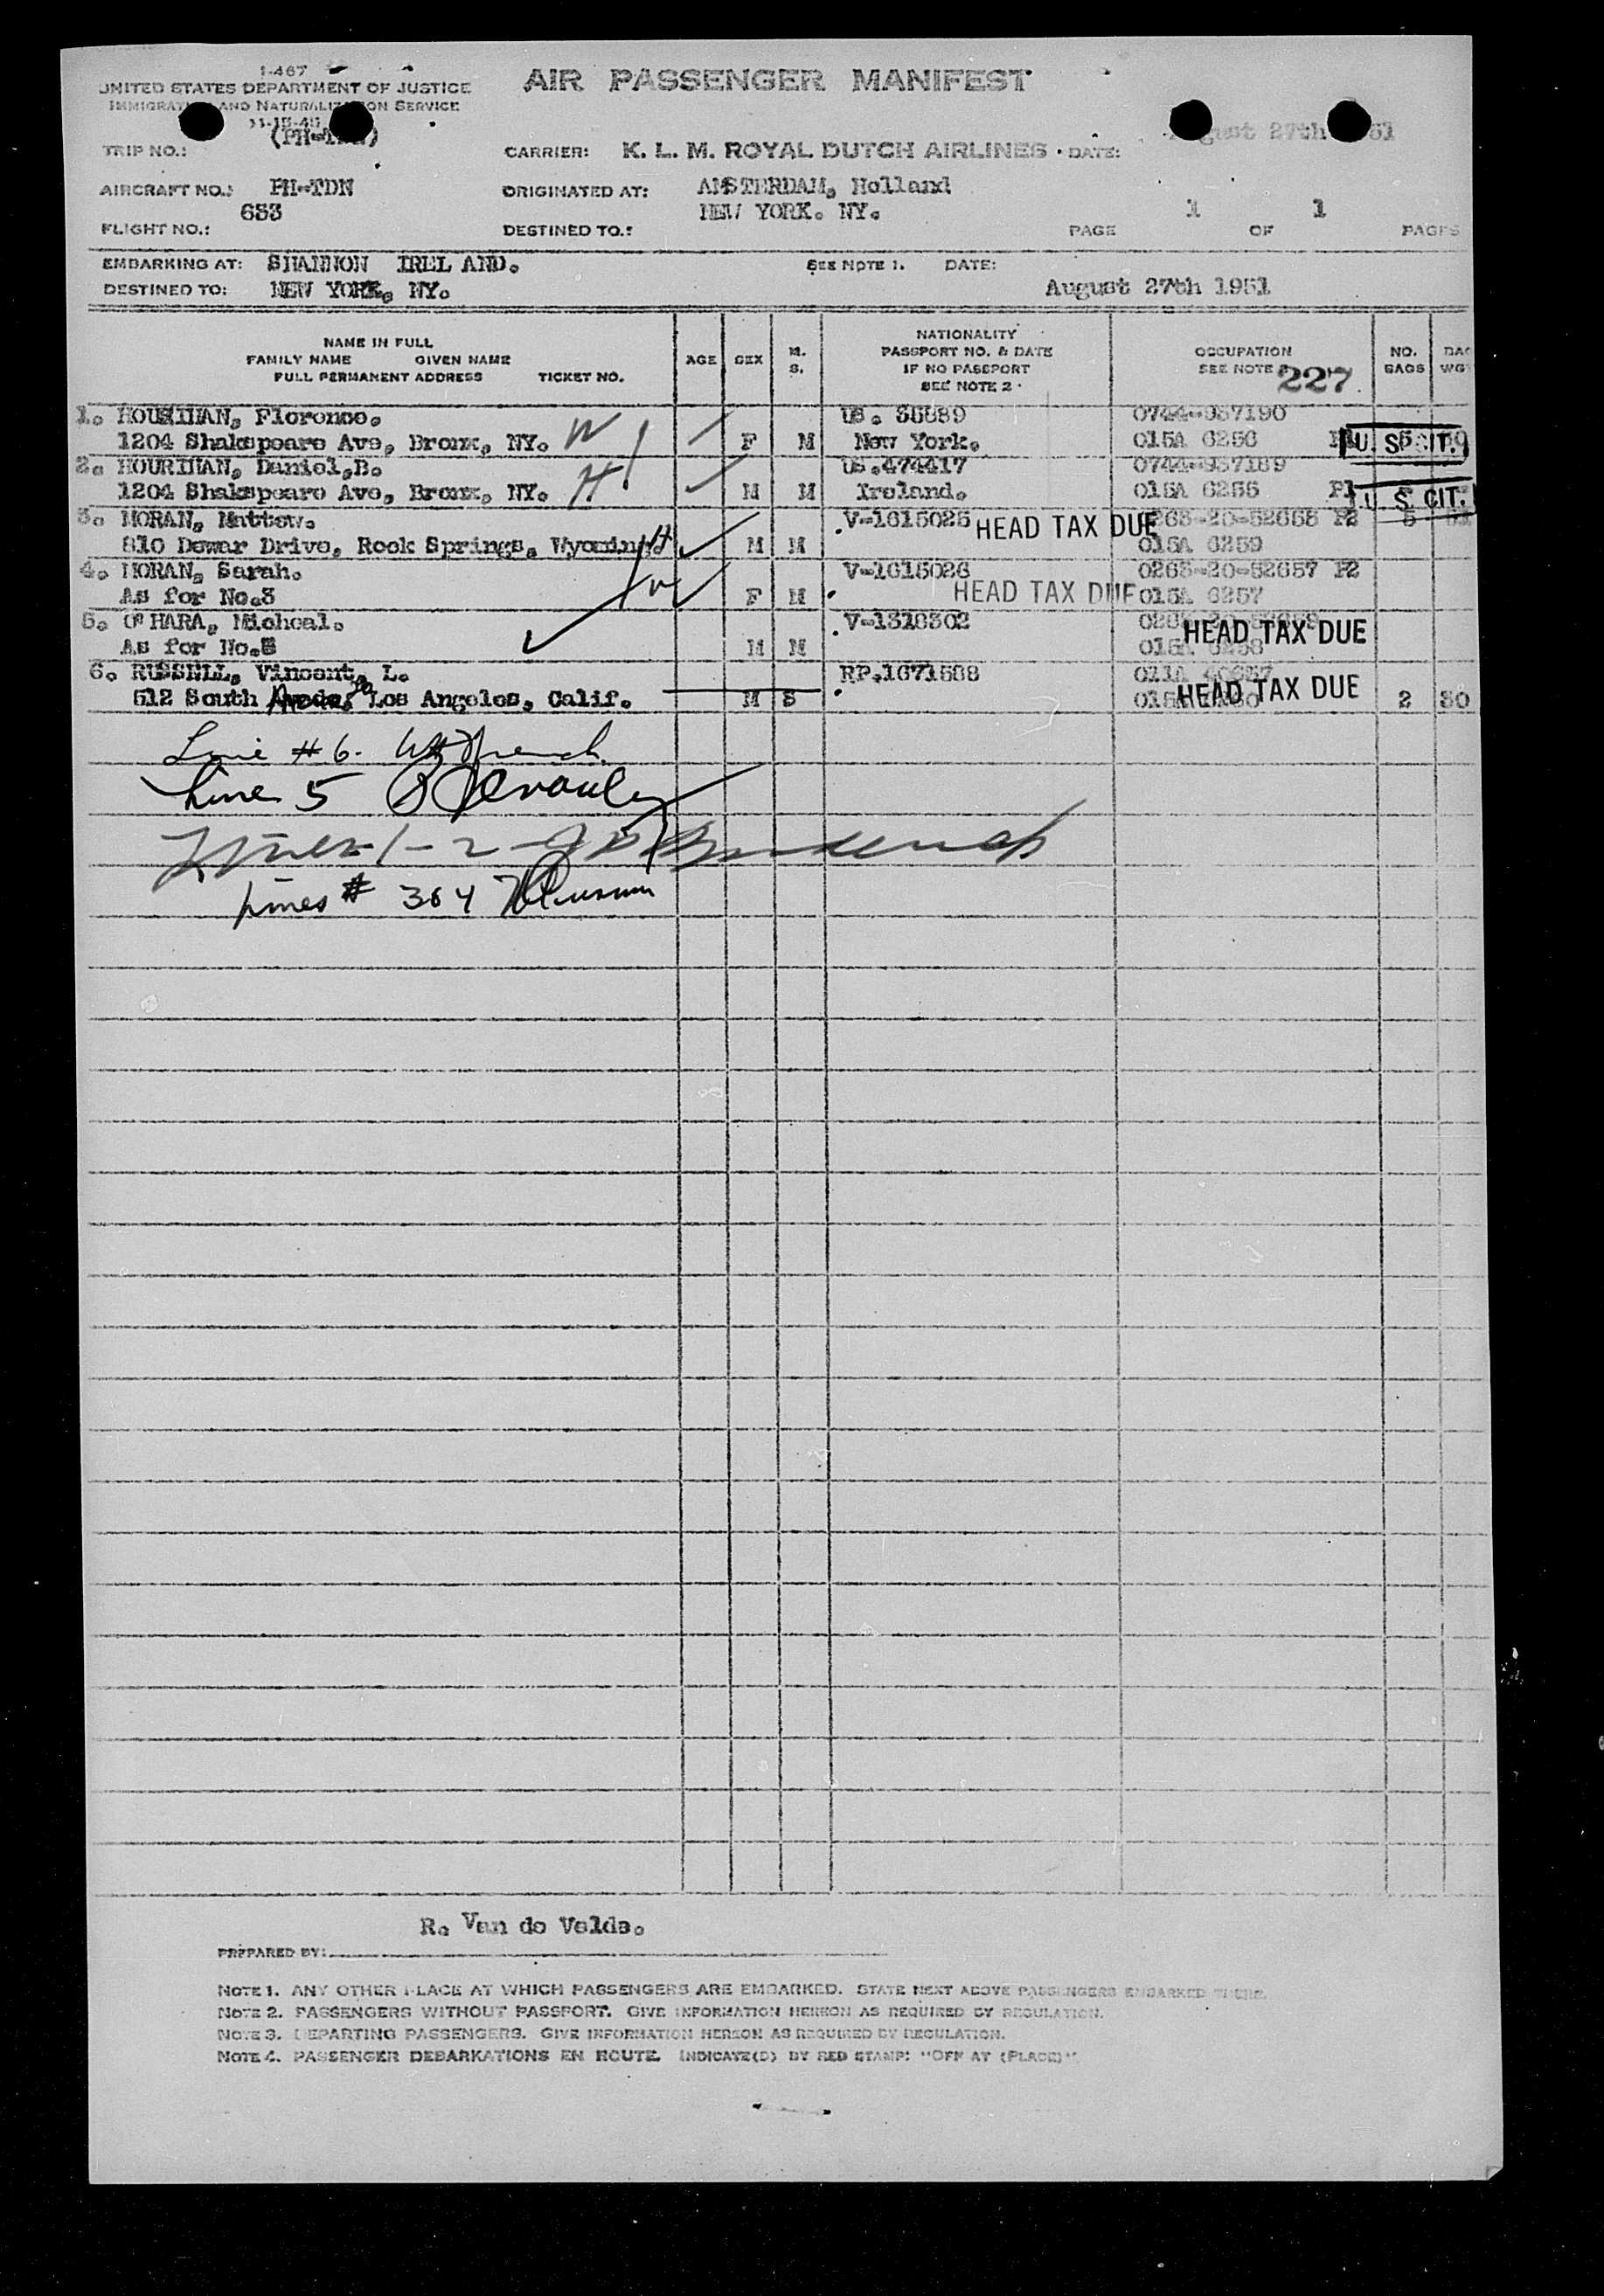 I-467
UNITED STATES DEPARTMENT OF JUSTICE
AIR PASSENGER MANIFEST
IMMIGRATION AND NATURALIZATION SERVICE
August 27th 1951
TRIP NO.:
CARRIER: K. L. M. ROYAL DUTCH AIRLINES DATE:
AIRCRAFT NO.: PH-TDN
ORIGINATED AT: AMSTERDAM, Holland
FLIGHT NO.: 653
DESTINED TO.: NEW YORK. NY.
PAGE 1 OF 1 PAGES
EMBARKING AT: SHANNON IREL AND.
SEE NOTE 1. DATE:
DESTINED TO: NEW YORK, NY.
August 27th 1951
NAME IN FULL
FAMILY NAME GIVEN NAME
FULL PERMANENT ADDRESS TICKET NO.
AGE
SEX
M.
S.
NATIONALITY
PASSPORT NO. & DATE
IF NO PASSPORT
SEE NOTE 2
OCCUPATION
SEE NOTE
227
NO.
BAGS
1. HOURIHAN, Florence. US.
1204 Shakspeare Ave, Bronx, NY. W F M New York. 015A 6256 U. S. CIT.
2. HOURIHAN, Daniel,B. US.474417 0744-937189
1204 Shakspeare Ave, Bronx, NY. H M M Ireland. 015A 6255 P1 U. S. CIT.
3. MORAN, Mattew. V-1615025 HEAD TAX DUE 0263-20-52658 P2 5
810 Dewar Drive, Rock Springs, Wyoming. H M M 015A 6259
4. MORAN, Sarah. V-1615026 0263-20-52657 P2
As for No.3 W F M HEAD TAX DUE 015A 6257
5. O'HARA, Micheal. V-1318302
As for No. M M 015A 6258 HEAD TAX DUE
6. RUSSELL, Vincent, L. RP.1671588 011A
512 South Los Angeles, Calif. M S HEAD TAX DUE 2 30
Line #6.
Line 5
Lines 1-2-
Lines # 3&4
R. Van de Velde.
PREPARED BY:
NOTE 1. ANY OTHER PLACE AT WHICH PASSENGERS ARE EMBARKED. STATE NEXT ABOVE PASSENGERS EMBARKED THERE.
NOTE 2. PASSENGERS WITHOUT PASSPORT. GIVE INFORMATION HEREON AS REQUIRED BY REGULATION.
NOTE 3. DEPARTING PASSENGERS. GIVE INFORMATION HEREON AS REQUIRED BY REGULATION.
NOTE 4. PASSENGER DEBARKATIONS EN ROUTE. INDICATE(D) BY RED STAMP: "OFF AT (PLACE)"